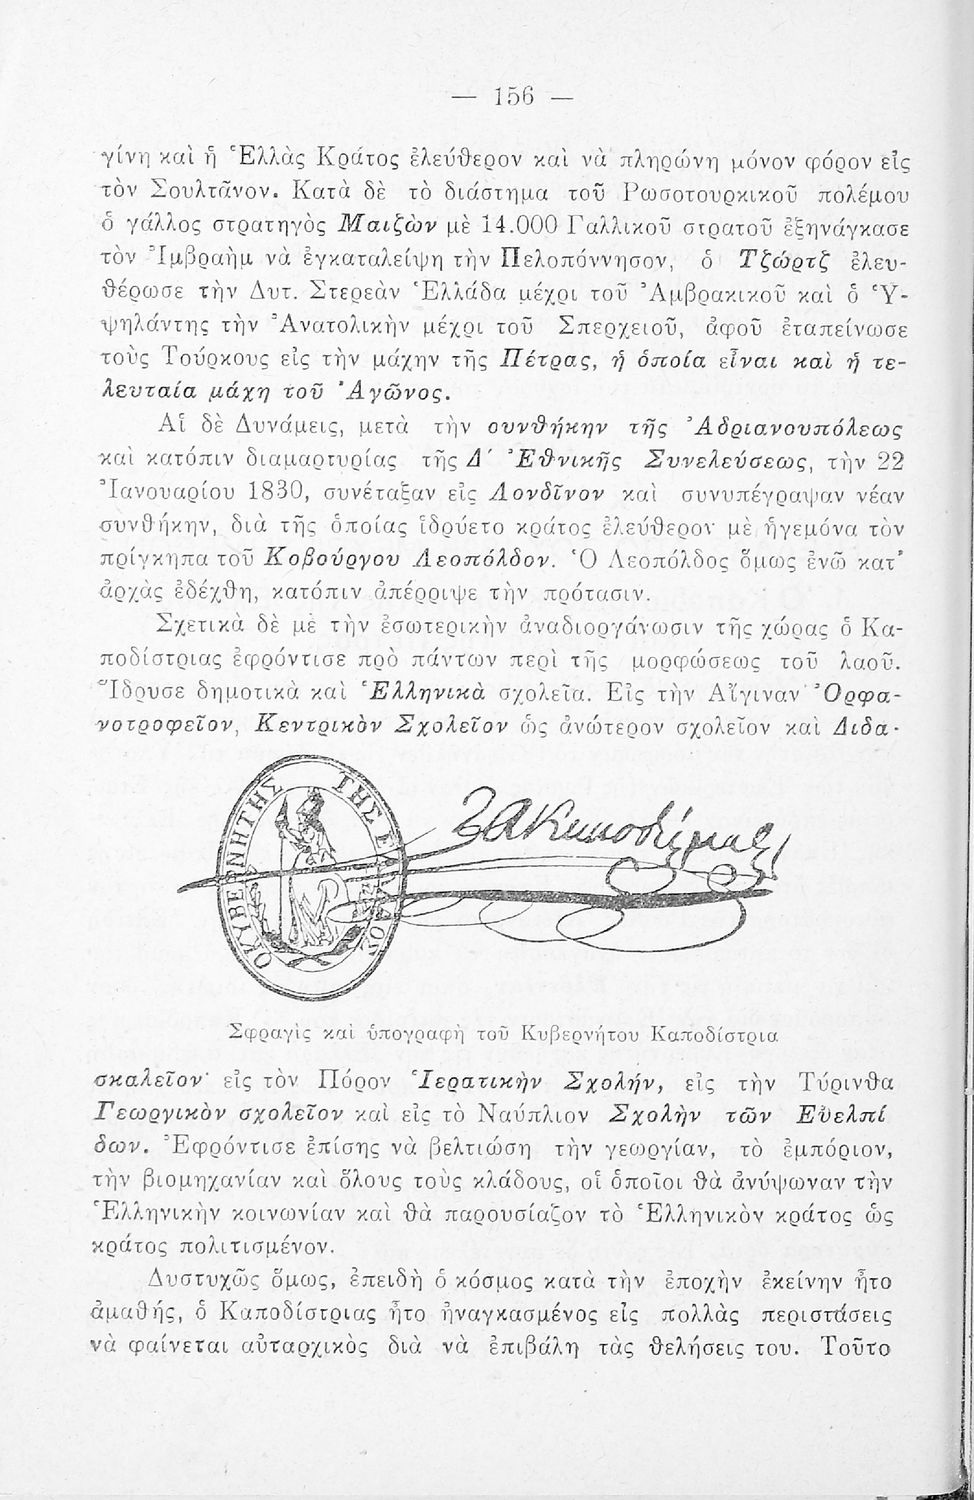 — 156 —
γίνῃ καὶ ἡ Ἑλλὰς Κράτος ἐλεύθερον καὶ νὰ πληρώνῃ μόνον φόρον εἰς
τὸν Σουλτᾶνον. Κατὰ δὲ τὸ διάστημα τοῦ Ρωσοτουρκικοῦ πολέμου
ὁ γάλλος στρατηγὸς Μαιζὼν μὲ 14.000 Γαλλικοῦ στρατοῦ ἐξηνάγκασε
τὸν Ἰμβραὴμ νὰ ἐγκαταλείψῃ τὴν Πελοπόννησον, ὁ Τζώρτζ ἐλευ-
θέρωσε τὴν Δυτ. Στερεὰν Ἑλλάδα μέχρι τοῦ Ἀμβρακικοῦ καὶ ὁ Ὑ-
ψηλάντης τὴν Ἀνατολικὴν μέχρι τοῦ Σπερχειοῦ, ἀφοῦ ἐταπείνωσε
τοὺς Τούρκους εἰς τὴν μάχην τῆς Πέτρας, ἡ ὁποία εἶναι καὶ ἡ τε-
λευταία μάχη τοῦ Ἀγῶνος.
Αἱ δὲ Δυνάμεις, μετὰ τὴν συνθήκην τῆς Ἀδριανουπόλεως
καὶ κατόπιν διαμαρτυρίας τῆς Δ΄ Ἐθνικῆς Συνελεύσεως, τὴν 22
Ἰανουαρίου 1830, συνέταξαν εἰς Λονδῖνον καὶ συνυπέγραψαν νέαν
συνθήκην, διὰ τῆς ὁποίας ἱδρύετο κράτος ἐλεύθερον μὲ ἡγεμόνα τὸν
πρίγκηπα τοῦ Κοβούργου Λεοπόλδον. Ὁ Λεοπόλδος ὅμως ἐνῶ κατ᾽
ἀρχὰς ἐδέχθη, κατόπιν ἀπέρριψε τὴν πρότασιν.
Σχετικὰ δὲ μὲ τὴν ἐσωτερικὴν ἀναδιοργάνωσιν τῆς χώρας ὁ Κα-
ποδίστριας ἐφρόντισε πρὸ πάντων περὶ τῆς μορφώσεως τοῦ λαοῦ.
Ἵδρυσε δημοτικὰ καὶ Ἑλληνικὰ σχολεῖα. Εἰς τὴν Αἴγιναν Ὀρφα-
νοτροφεῖον, Κεντρικὸν Σχολεῖον ὡς ἀνώτερον σχολεῖον καὶ Διδα-
Ο ΚΥΒΕΡΝΗΤΗΣ ΤΗΣ ΕΛΛΑΔΟΣ
Ι Α Καποδίστριας
Σφραγὶς καὶ ὑπογραφὴ τοῦ Κυβερνήτου Καποδίστρια
σκαλεῖον· εἰς τὸν Πόρον Ἱερατικὴν Σχολήν, εἰς τὴν Τύρινθα
Γεωργικὸν σχολεῖον καὶ εἰς τὸ Ναύπλιον Σχολὴν τῶν Εὐελπί
δων. Ἐφρόντισε ἐπίσης νὰ βελτιώσῃ τὴν γεωργίαν, τὸ ἐμπόριον,
τὴν βιομηχανίαν καὶ ὅλους τοὺς κλάδους, οἱ ὁποῖοι θὰ ἀνύψωναν τὴν
Ἑλληνικὴν κοινωνίαν καὶ θὰ παρουσίαζον τὸ Ἑλληνικὸν κράτος ὡς
κράτος πολιτισμένον.
Δυστυχῶς ὅμως, ἐπειδὴ ὁ κόσμος κατὰ τὴν ἐποχὴν ἐκείνην ἦτο
ἀμαθής, ὁ Καποδίστριας ἦτο ἠναγκασμένος εἰς πολλὰς περιστάσεις
νὰ φαίνεται αὐταρχικὸς διὰ νὰ ἐπιβάλῃ τὰς θελήσεις του. Τοῦτο